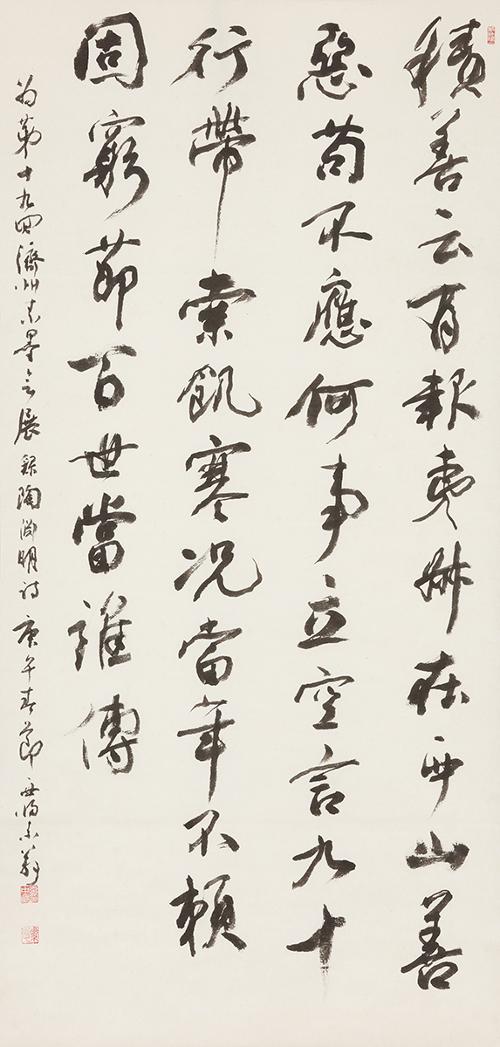 積善云有報夷叔在西山善
惡苟不應何事立空言九十
行帶索飢寒況當年不賴
固窮節百世當誰傳
为第十九回濟州素墨会展録陶渊明诗 庚午春節 西归素翁